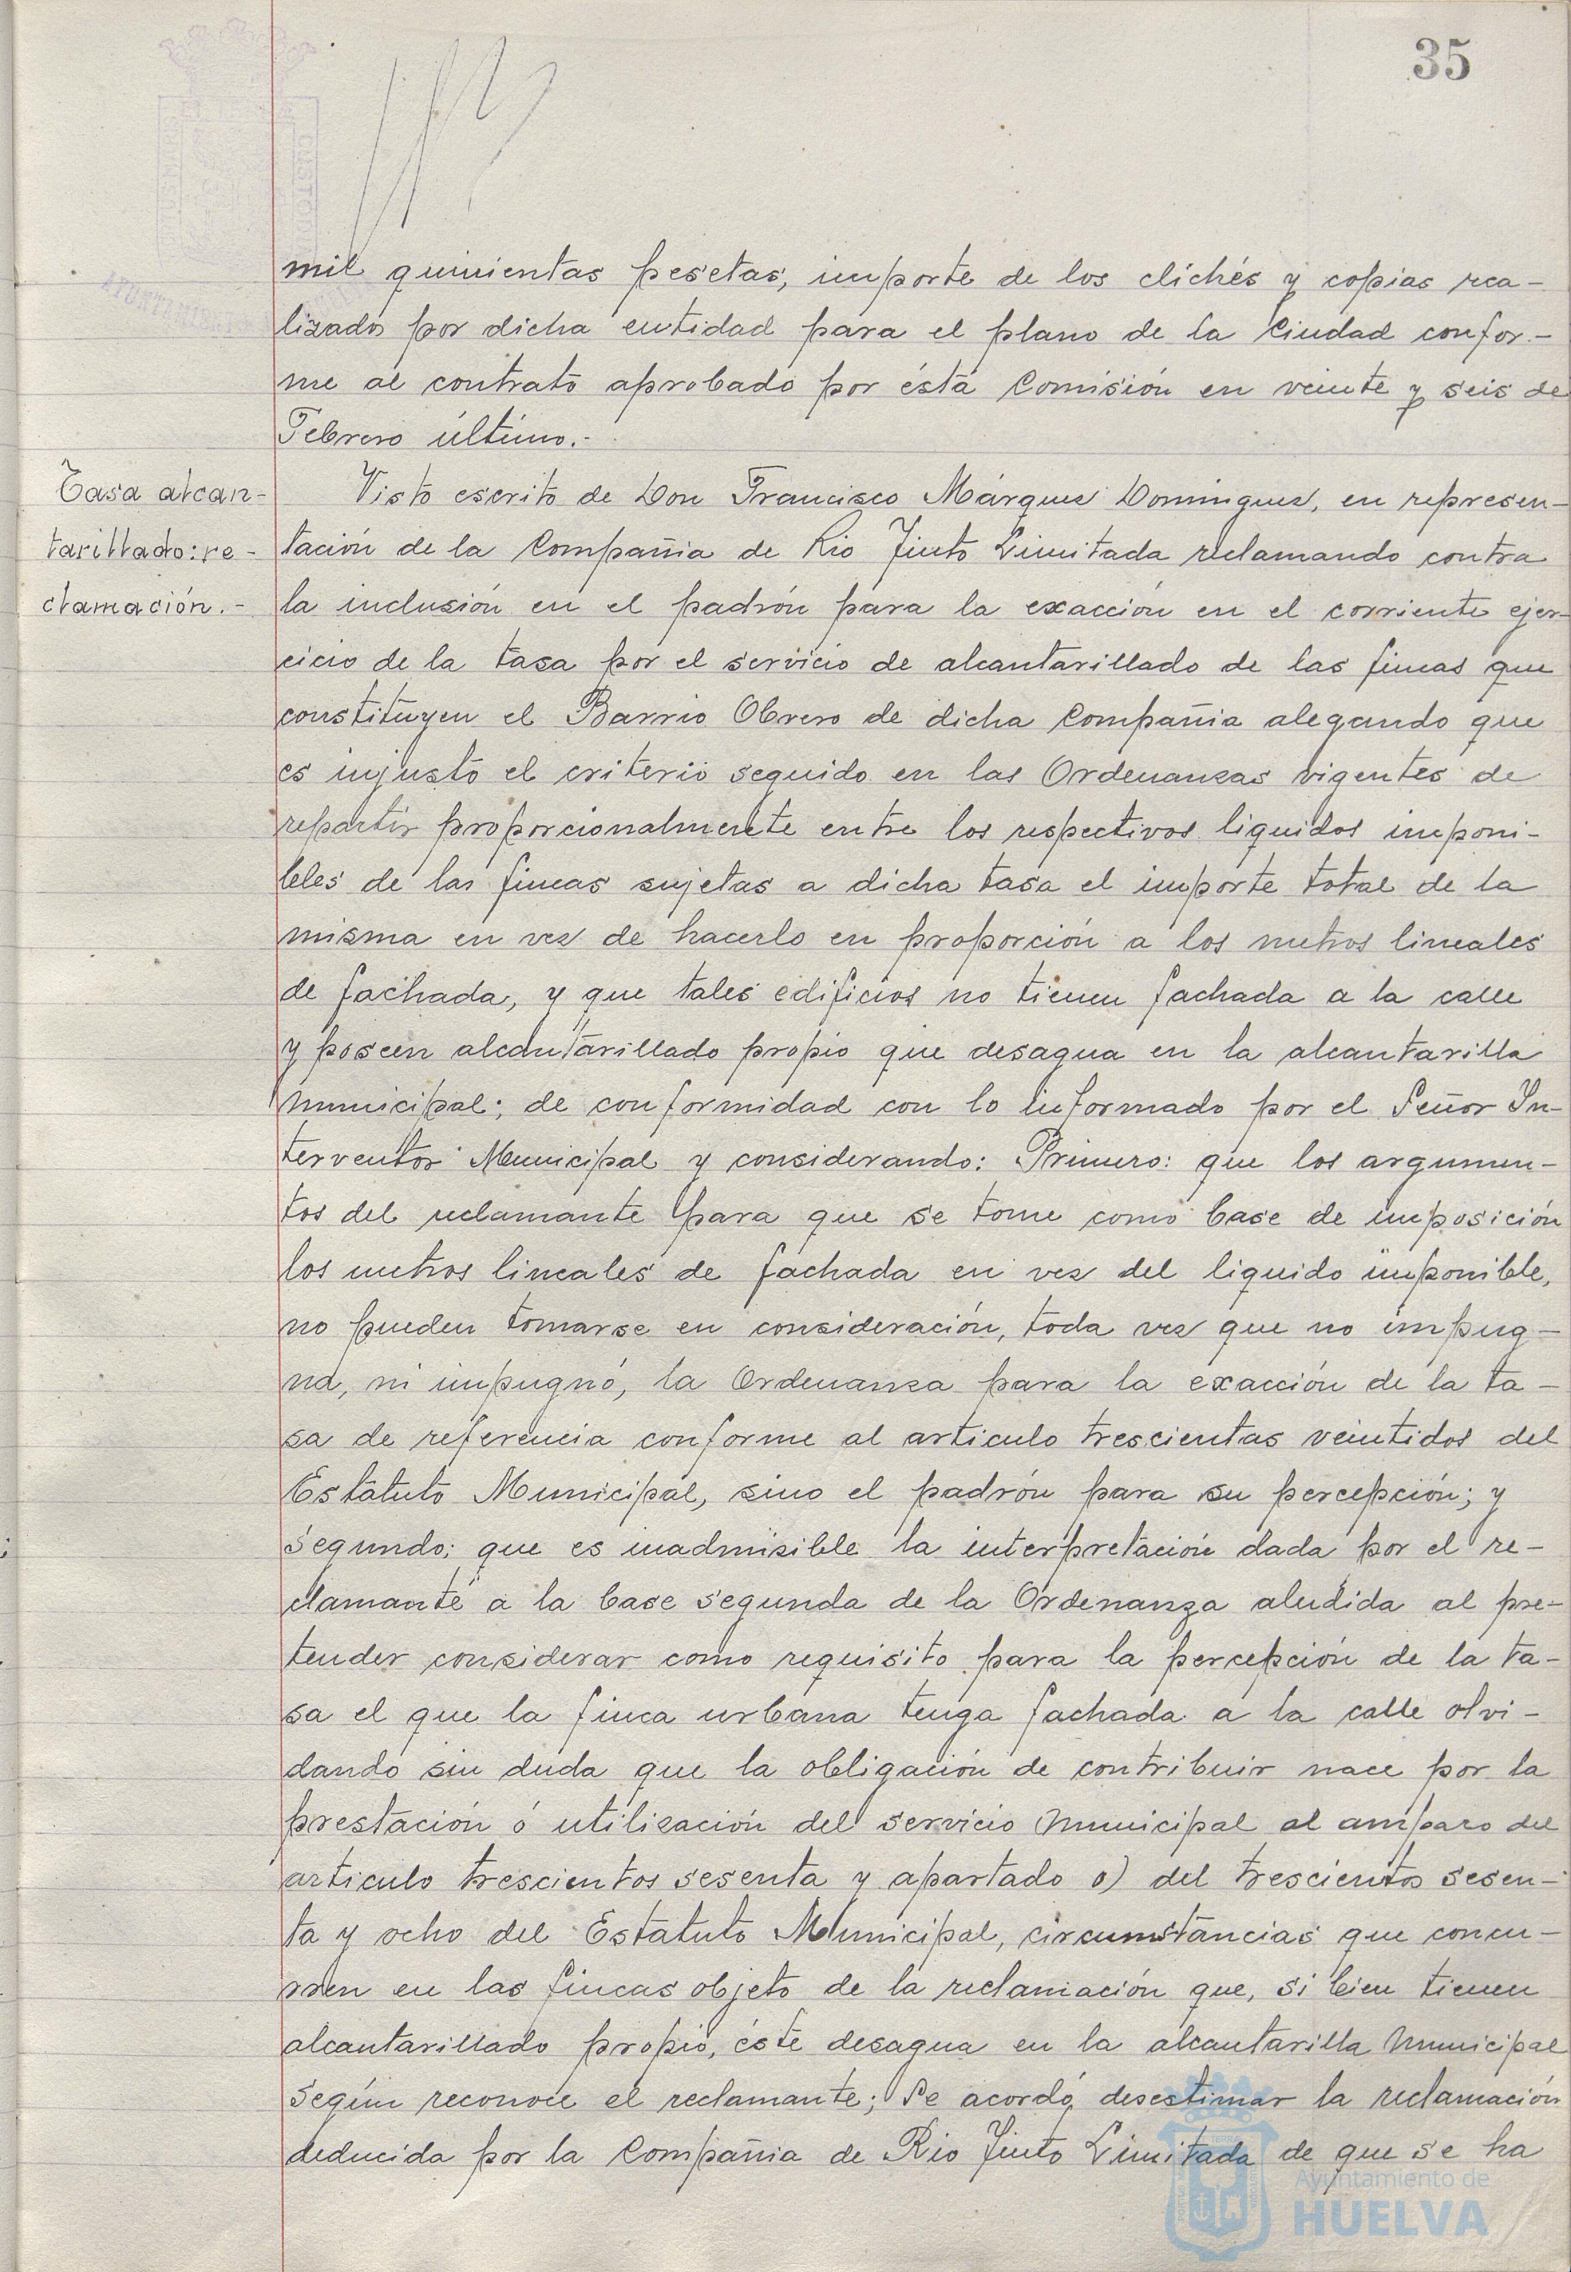 35
mil quinientas pesetas, importe de los clichés y copias rea-
lizados por dicha entidad para el plano de la Ciudad confor-
me al contrato aprobado por ésta Comisión en veinte y seis de
Febrero último.-
Tasa alcan-
tarillado: re-
clamación.-
Visto escrito de Don Francisco Márquez Dominguez, en represen-
tación de la Compañia de Rio Tinto Limitada reclamando contra
la inclusión en el padrón para la exacción en el corriente ejer-
cicio de la tasa por el servicio de alcantarillado de las fincas que
constituyen el Barrio Obrero de dicha Compañia alegando que
es injusto el criterio seguido en las Ordenanzas vigentes de
repartir proporcionalmente entre los respectivos liquidos imponi-
bles de las fincas sujetas a dicha tasa el importe total de la
misma en vez de hacerlo en proporción a los metros lineales
de fachada, y que tales edificios no tienen fachada a la calle
y poseen alcantarillado propio que desagua en la alcantarilla
municipal; de conformidad con lo informado por el Señor In-
terventor Municipal y considerando: Primero: que los argumen-
tos del reclamante para que se tome como base de imposición
los metros lineales de fachada en vez del liquido imponible,
no pueden tomarse en consideración, toda vez que no impug-
na, ni impugnó, la Ordenanza para la exacción de la ta-
sa de referencia conforme al articulo trescientas veintidos del
Estatuto Municipal, sino el padrón para su percepción; y
Segundo: que es inadmisible la interpretación dada por el re-
clamante a la base segunda de la Ordenanza aludida al pre-
tender considerar como requisito para la percepción de la ta-
sa el que la finca urbana tenga fachada a la calle olvi-
dando sin duda que la obligación de contribuir nace por la
prestación ó utilización del servicio municipal al amparo del
articulo trescientos sesenta y apartado o) del trescientos sesen-
ta y ocho del Estatuto Municipal, circumstancias que concu-
rren en las fincas objeto de la reclamación que, si bien tienen
alcantarillado propio, éste desagua en la alcantarilla municipal
según reconoce el reclamante; Se acordó desestimar la reclamación
deducida por la Compañia de Rio Tinto Limitada de que se ha
Ayuntamiento de
HUELVA